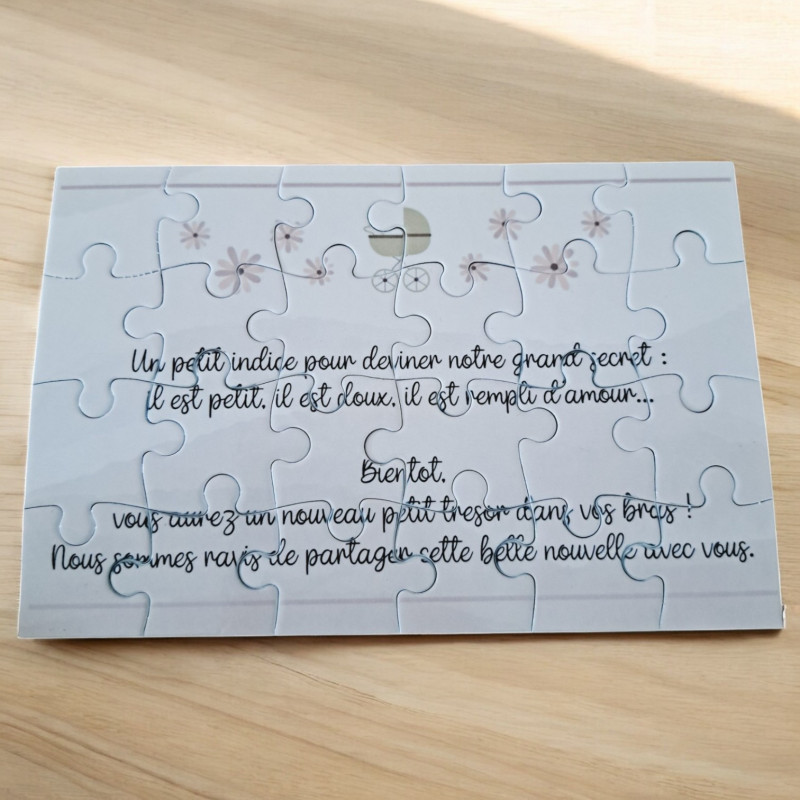 Un petit indice pour deviner notre grand secret :
il est petit, il est doux, il est rempli d'amour...
Bientot,
vous aurez un nouveau petit tresor dans vos bras !
Nous sommes ravis de partager cette belle nouvelle avec vous.